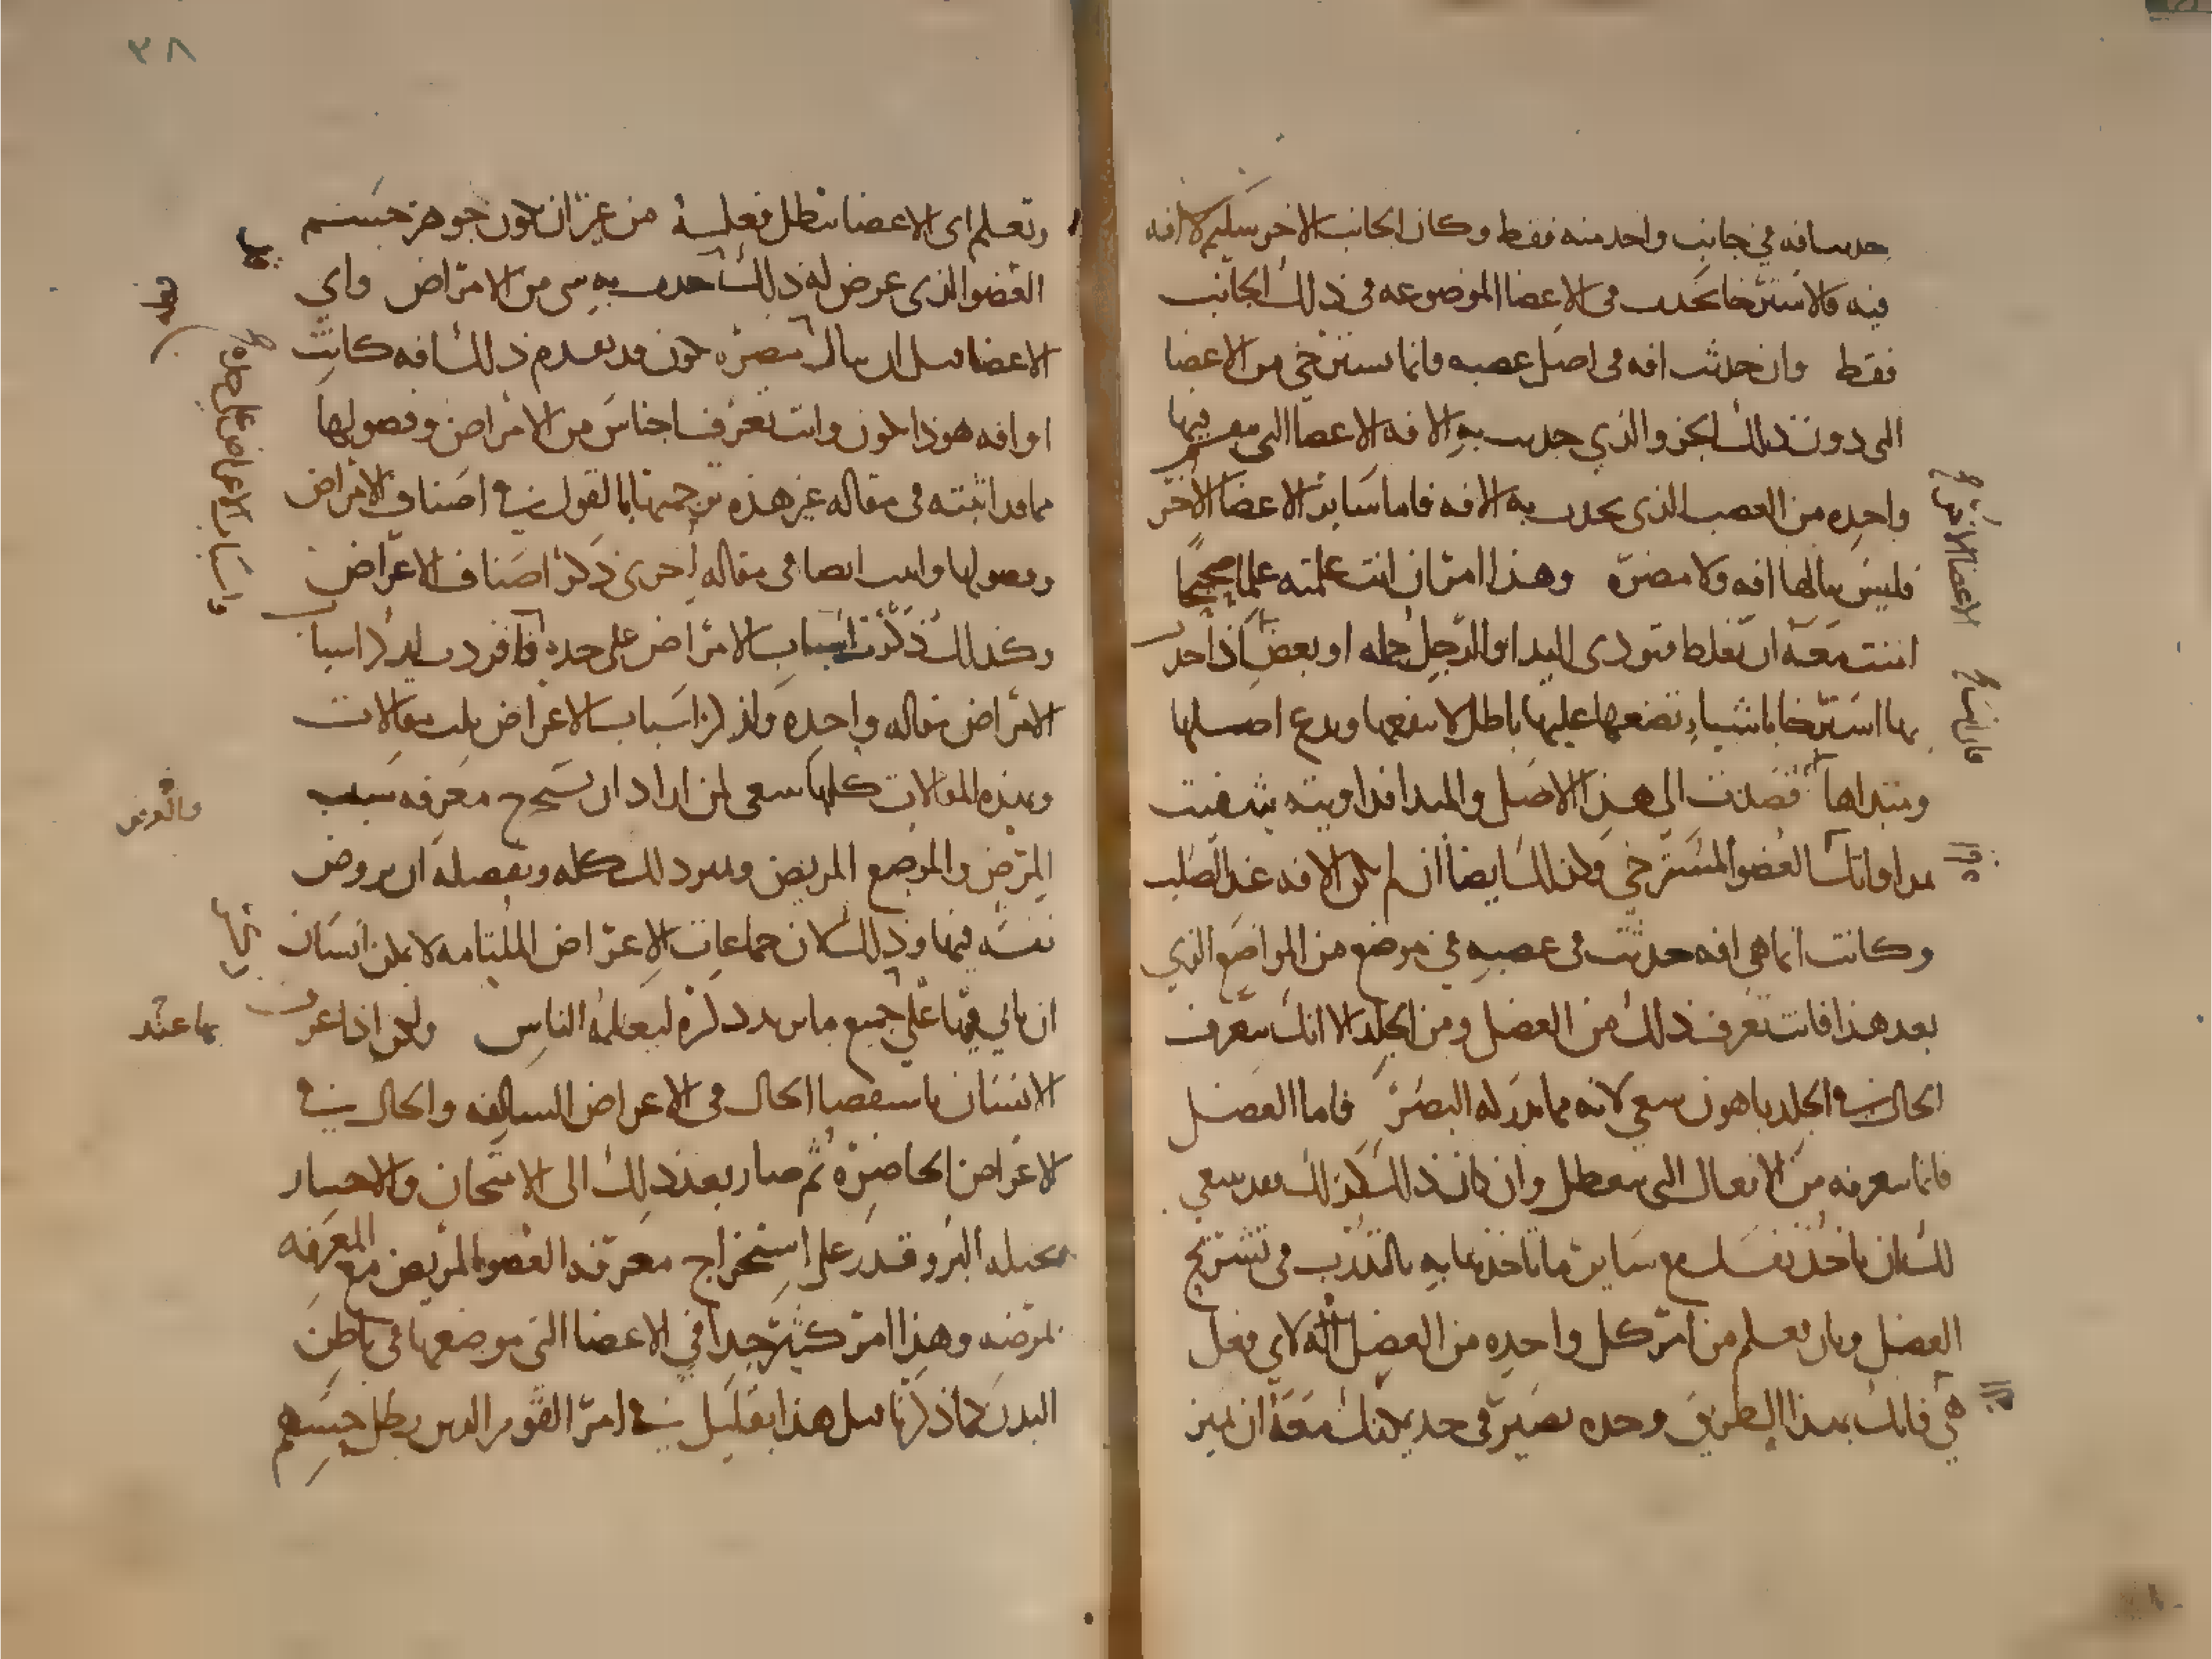 حدست افه في جانب واحد منه فقط وكان الجانب الاخر سليم لا افه
فيه فالاسترخا يحدث في الاعضا الموضوعه في ذلك الجانب
فقط وان حدثت افه في اصل عصبه فانما يسترخي من الاعضا
التي دون ذلك الجزو الذي حدثت به الافه الاعضا التي فيها
واحده من العصب الذي يحدث به الافه فاما ساير الاعضا الاخر
فليس ينالها افه ولا مضره وهذا امر ان انت علمته علما صحيحا
امنت معه ان تغلط فتودي اليد او الرجل جمله او بعض اذا حدث
بها استرخا باشياء تضعها عليها باطلا لا ينفعها وتدع اصلها
ومبتداها قصدت الى هذا الاصل والمبدا فداويته شفيت
مداواتك العضو المسترخي وكذلك ايضا ان لم تكن الافه عند الصلب
وكانت انما هي افه حدثت في عصبه في موضع من المواضع الذي
بعد هذا فانت تعرف ذلك من العضل ومن الجلد الا انك تتعرف
الحال في الجلد باهون سعي لانه مما يدركه البصر فاما العضل
فانما تعرفه من الافعال التي تتعطل وان كان ذلك كذلك فقد ينبغي
لك ان تاخذ نفسك مع ساير ما تاخذها به بالتدرب في تشريح
العضل وبان تعلم من امر كل واحده من العضل انه لاي فعل
هي فانك بهذا الطريق وحده تصير في حد يمكنك معه ان تميز
الاعضا الاخر
فان انت
٣٨
وتعلم اي الاعضا بطل فعله من غير ان يكون جوهر جسم
العضو الذي عرض له ذلك حدث به شي من الامراض واي
الاعضا قبل ان ينال مضره يكون قد تقدم ذلك افه كانت
او افه هوذا تكون وانت تعرف اجناس من الامراض وفصولها
مما قد اثبته في مقاله غير هذه ترجمتها بالقول في اصناف الامراض
وفصولها واثبت ايضا في مقاله اخرى ذكر اصناف الاعراض
وكذلك ذكرت اسباب الامراض على حده فافردت لذكر اسباب
الامراض مقاله واحده ولذكر اسباب الاعراض ثلث مقالات
وبهذه المقالات كلها ينبغي لمن اراد ان يستخرج معرفه سبب
المرض والموضع المريض وتمييز ذلك كله وتفصيله ان يروض
نفسه فيها وذلك لان جماعات الاعراض الملتامه لا يمكن انسان
ان ياتي فيها على جميع ما يريد ذكره ليعلمه الناس ولكن اذا عرف
الانسان باستقصا الحال في الاعراض السالفه والحال في
الاعراض الحاضره ثم صار بعد ذلك الى الامتحان والاختبار
البرو قدر على استخراج معرفه العضو المريض مع المعرفه
بمرضه وهذا امر كثير جدا في الاعضا التي موضعها في باطن
البدن كما ذكرنا قبل هذا بقليل في امر القوم الذين بطل حسهم
بما عند